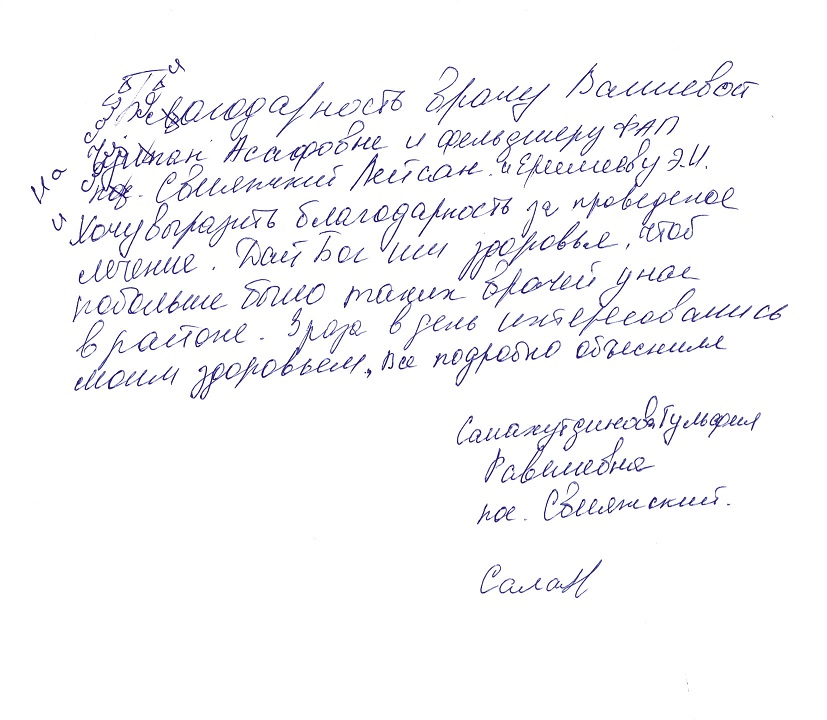 Благодарность врачу Валиевой
Чулпан Асафовне и фельдшеру ФАП
пос. Свияжский Лейсан. и Еремееву Э.И.
Хочу выразить благодарность за проведеное
лечение. Дай Бог им здоровье, чтоб
побольше было таких врачей у нас
в районе. 3 раза в день интересовались
моим здоровьем, Все подробно объеснили
Салахутдинова Гульфия
Равилевна
пос. Свияжский.
СалаН